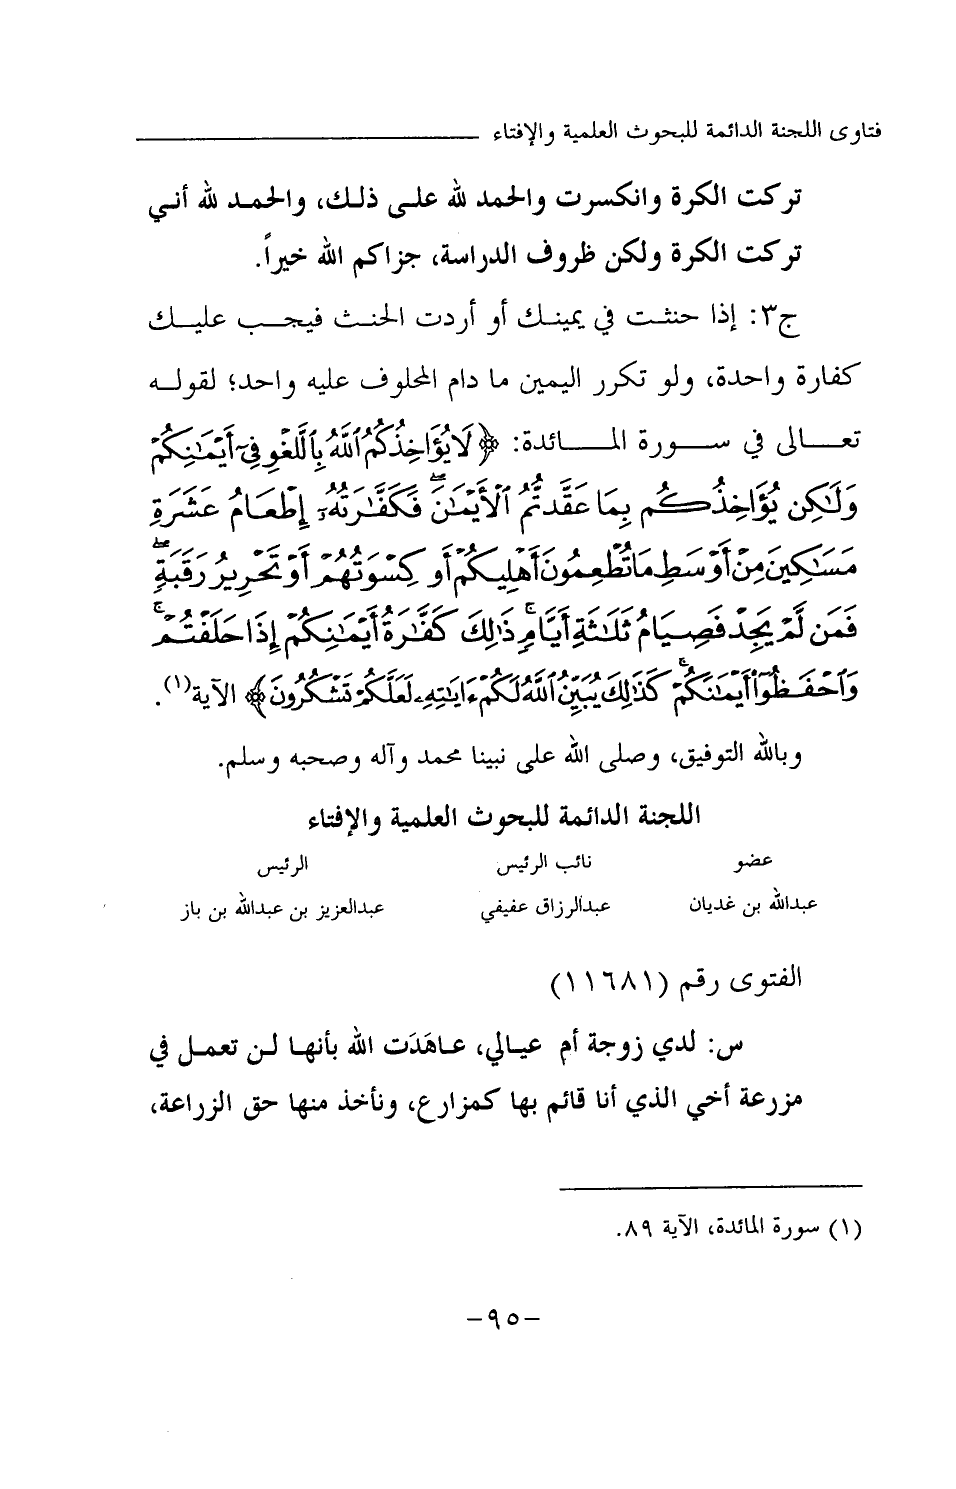 فتاوى اللجنة الدائمة للبحوث العلمية والإفتاء
تركت الكرة وانكسرت والحمد لله على ذلك، والحمد لله أني
تركت الكرة ولكن ظروف الدراسة، جزاكم الله خيراً.
ج٣: إذا حنثت في يمينك أو أردت الحنث فيجب عليك
كفارة واحدة، ولو تكرر اليمين ما دام المحلوف عليه واحد؛ لقوله
تعالى في سورة المائدة: ﴿لَا يُؤَاخِذُكُمُ ٱللَّهُ بِٱللَّغْوِ فِىٓ أَيْمَـٰنِكُمْ
وَلَـٰكِن يُؤَاخِذُكُم بِمَا عَقَّدتُّمُ ٱلْأَيْمَـٰنَ ۖ فَكَفَّـٰرَتُهُۥٓ إِطْعَامُ عَشَرَةِ
مَسَـٰكِينَ مِنْ أَوْسَطِ مَا تُطْعِمُونَ أَهْلِيكُمْ أَوْ كِسْوَتُهُمْ أَوْ تَحْرِيرُ رَقَبَةٍ ۖ
فَمَن لَّمْ يَجِدْ فَصِيَامُ ثَلَـٰثَةِ أَيَّامٍ ۚ ذَٰلِكَ كَفَّـٰرَةُ أَيْمَـٰنِكُمْ إِذَا حَلَفْتُمْ ۚ
وَٱحْفَظُوٓا۟ أَيْمَـٰنَكُمْ ۚ كَذَٰلِكَ يُبَيِّنُ ٱللَّهُ لَكُمْ ءَايَـٰتِهِۦ لَعَلَّكُمْ تَشْكُرُونَ﴾ الآية(١).
وبالله التوفيق، وصلى الله على نبينا محمد وآله وصحبه وسلم.
اللجنة الدائمة للبحوث العلمية والإفتاء
عضو نائب الرئيس الرئيس
عبدالله بن غديان عبدالرزاق عفيفي عبدالعزيز بن عبدالله بن باز
الفتوى رقم (١١٦٨١)
س: لدي زوجة أم عيالي، عاهَدَت الله بأنها لن تعمل في
مزرعة أخي الذي أنا قائم بها كمزارع، ونأخذ منها حق الزراعة،
(١) سورة المائدة، الآية ٨٩.
-٩٥-